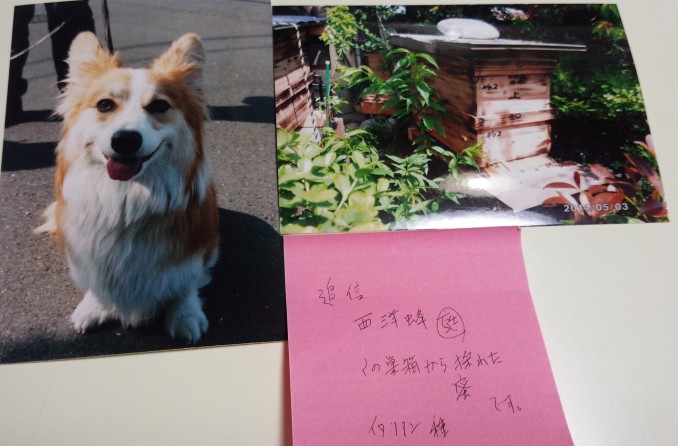 2014/05/03
上
追信
西洋蜂
この巣箱から採れた
蜜です。
イタリアン種